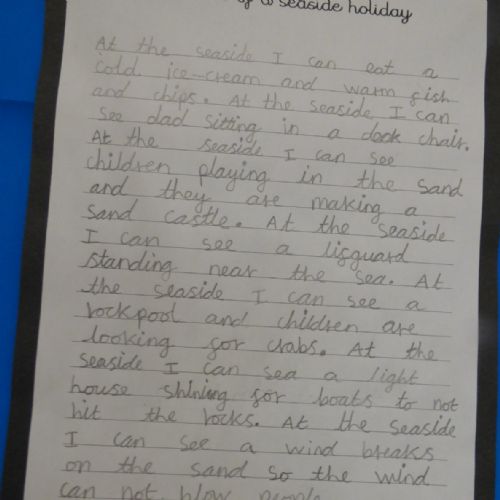 of a seaside holiday
At the seaside I can eat a
cold ice-cream and warm fish
and chips. At the seaside I can
see dad sitting in a deck chair.
At the seaside I can see
children playing in the sand
and they are making a
sand castle. At the seaside
I can see a lisguard
standing near the sea. At
the seaside I can see a
rockpool and children are
looking for crabs. At the
seaside I can sea a light
house shining for boats to not
hit the rocks. At the seaside
I can see a wind breaks
on the sand so the wind
can not blow people